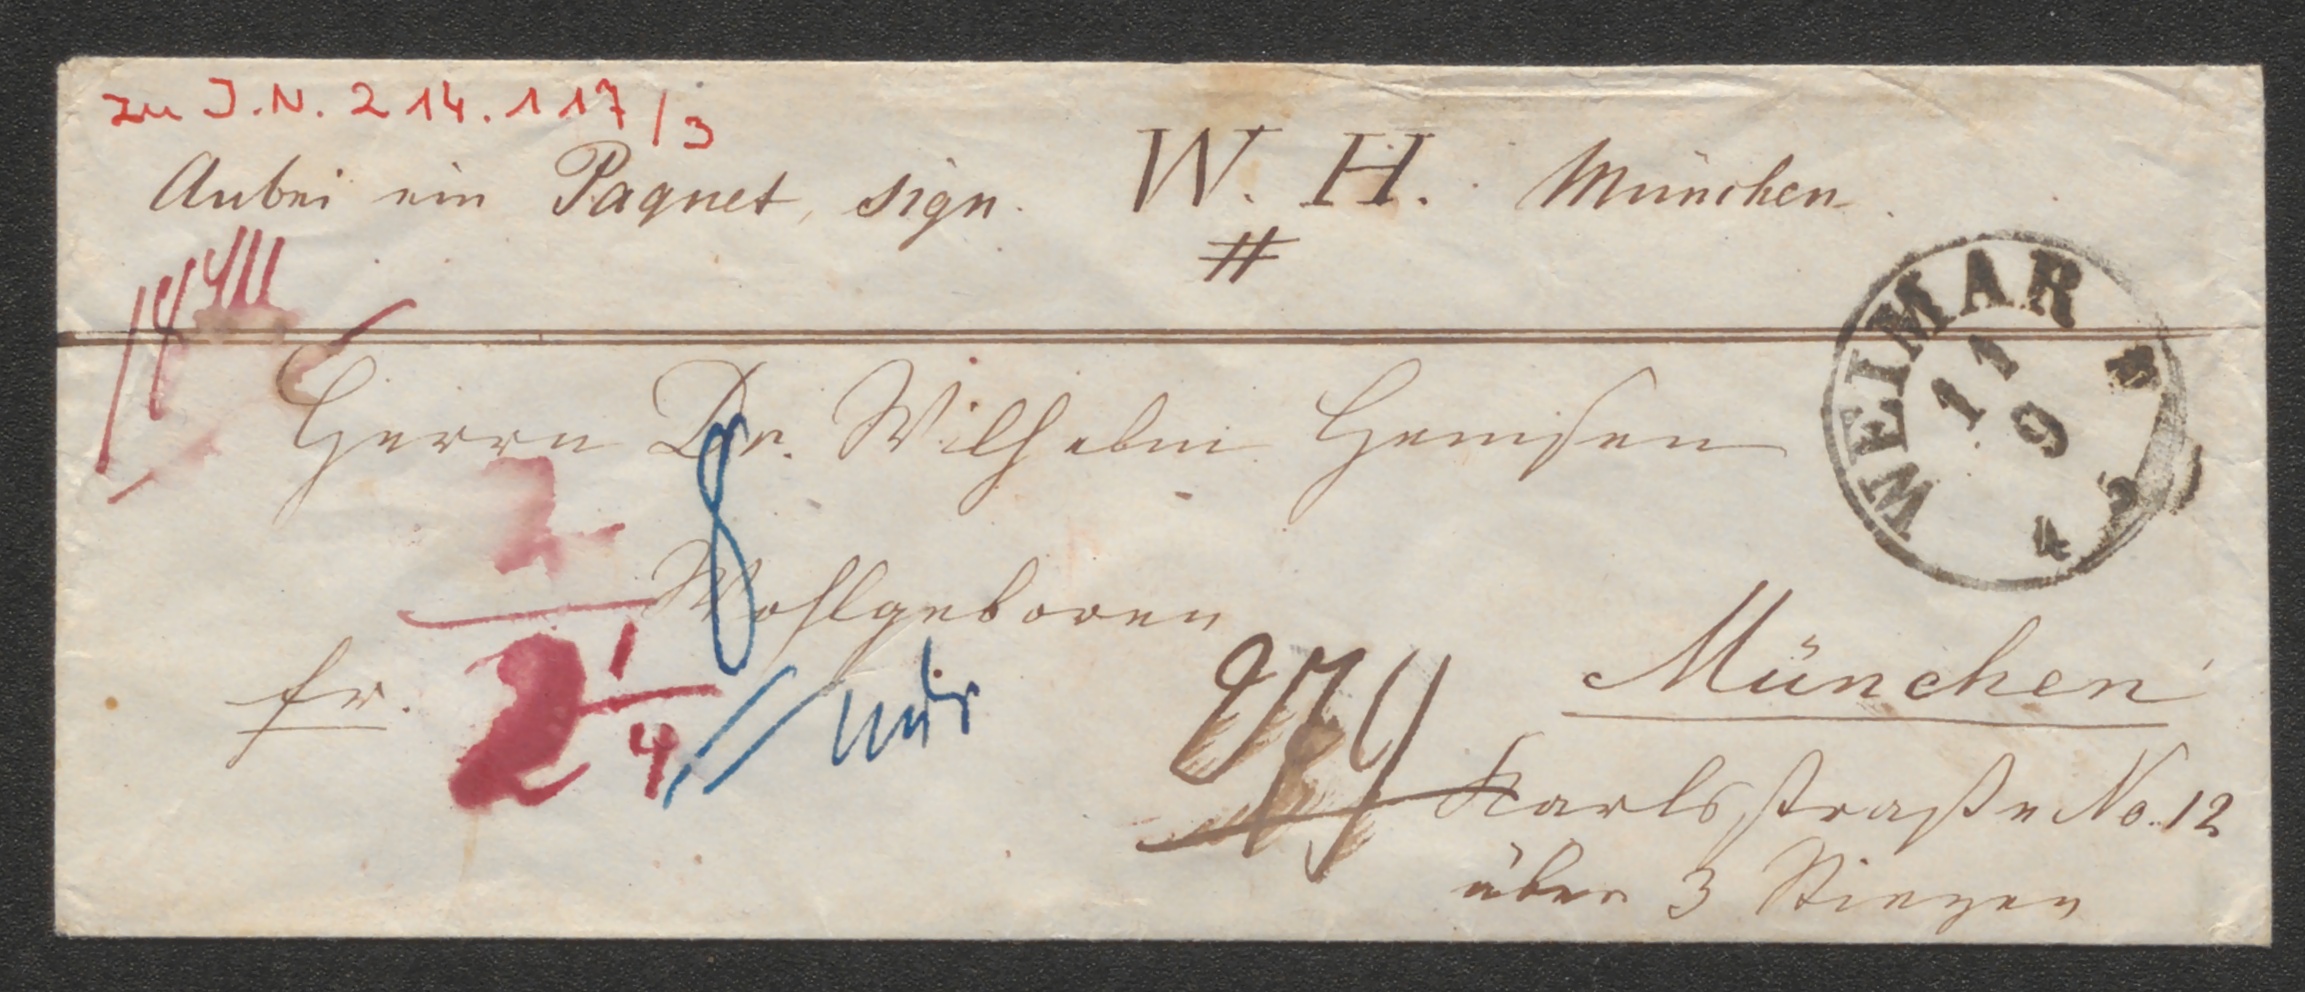 zu J.N. 214.117/3
Anbei ein Paquet, sign. W. H. München.
#
WEIMAR
11
9
4
Herrn Dr. Wilhelm Hemsen
8
Wohlgeboren
fr.
2 1/4
München
Karlsstraße No. 12
über 3 Stiegen